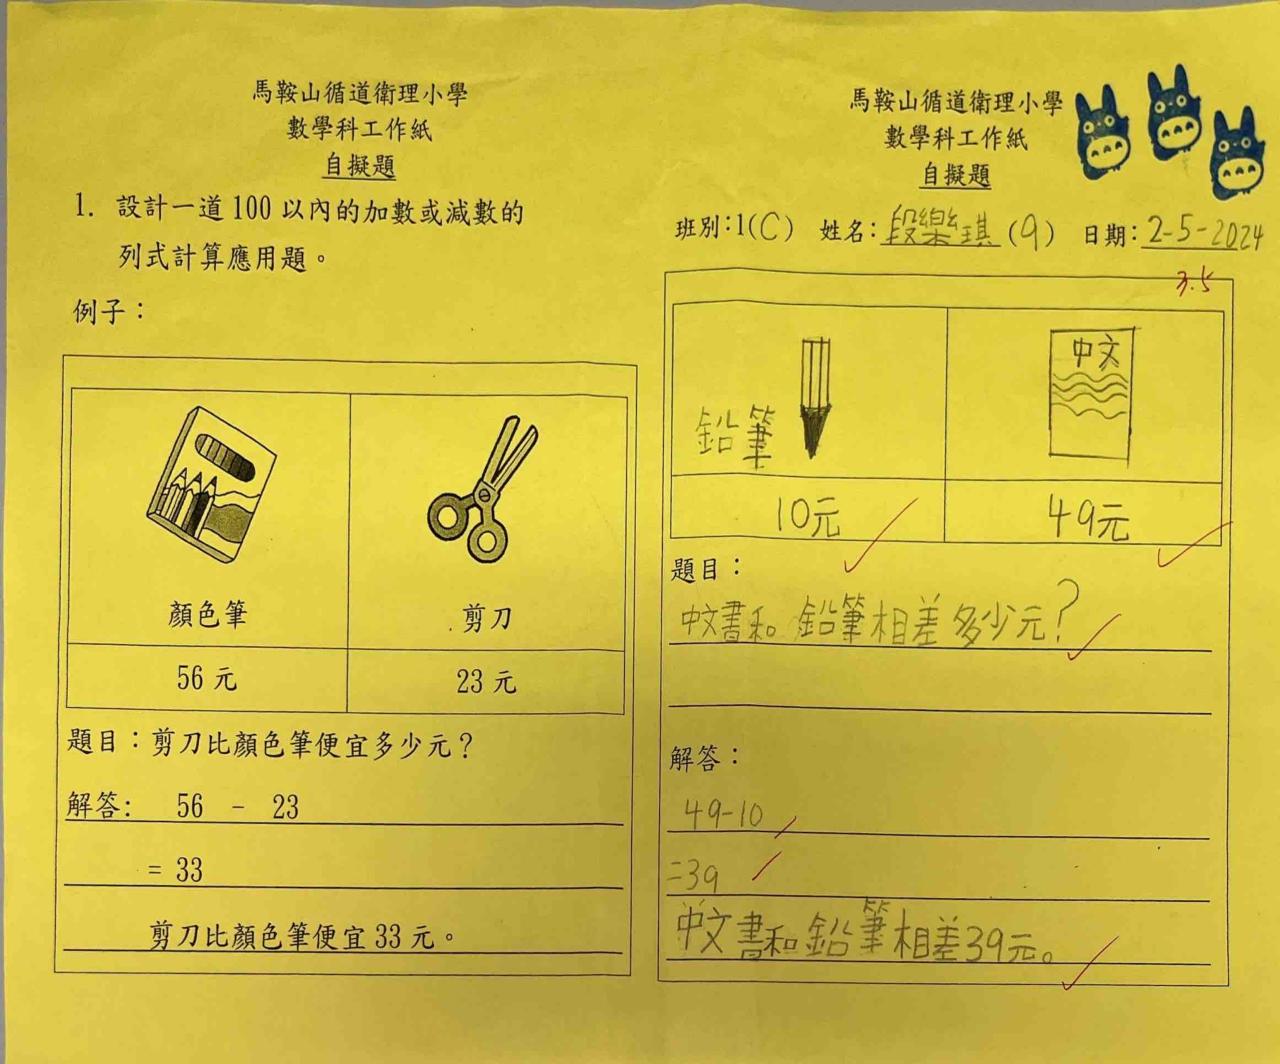 馬鞍山循道衛理小學
數學科工作紙
自擬題
1. 設計一道 100 以內的加數或減數的
列式計算應用題。
例子：
顏色筆
剪刀
56 元
23 元
題目：剪刀比顏色筆便宜多少元？
解答: 56 - 23
= 33
剪刀比顏色筆便宜 33 元。
馬鞍山循道衛理小學
數學科工作紙
自擬題
班別:1(C) 姓名:段樂琪(9) 日期:2-5-2024
3.5
鉛筆
中文
10元
49元
題目：
中文書和鉛筆相差多少元?
解答：
49-10
=39
中文書和鉛筆相差39元。